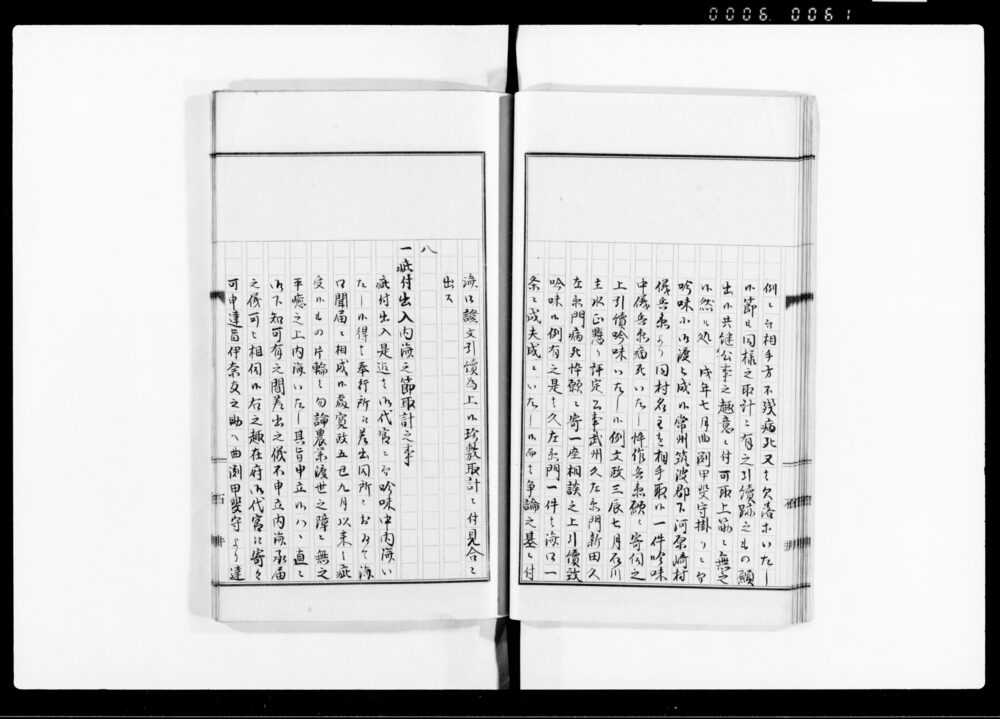 0006 0061
例ニ而相手方不残病死又者欠落等いたし
候節も同様之取計ニ有之引續跡之もの願
出候共継公事之趣意ニ付可取上筋ニ無之
候然ル処戌年七月曲渕甲斐守掛りニ而
吟味中御渡ニ成候常州筑波郡下河原崎村
儀兵衛より同村名主を相手取候一件吟味
中儀兵衛病死いたし悴作兵衛願ニ寄伺之
上引續吟味いたし候例文政三辰七月石川
主水正懸り評定公事武州久左衛門新田久
左衛門病死悴願ニ寄一座相談之上引續致
吟味候例有之是ハ久左衛門一件者済口一
条ニ成夫成ニいたし候而者争論之基ニ付
済口證文引續為上候珍敷取計ニ付見合ニ
出ス
八
一疵付出入内済之節取計之事
疵付出入是迄者御代官ニ而吟味中内済い
たし候得者奉行所江差出同所ニおゐて済
口聞届ニ相成候処寛政五丑九月以来ハ疵
受候もの片輪ニ勿論農業渡世之障ニ無之
平癒之上内済いたし其旨申立候ハヽ直ニ
御下知可有之間差出之儀不申立内済承届
之儀可申相伺候右之趣在府御代官江寄々
可申達旨伊奈友之助へ曲渕甲斐守より達